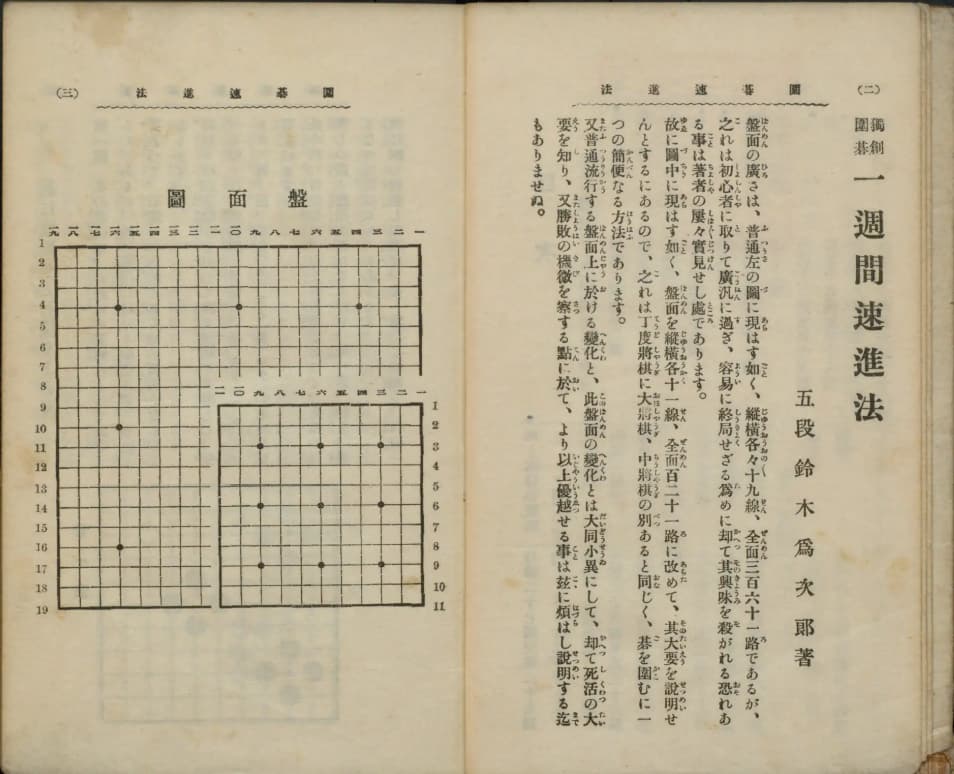 (二)
圍碁速進法
獨創
圍碁
一週間速進法
五段鈴木爲次郎著
盤面の廣さは、普通左の圖に現はす如く、縱橫各々十九線、全面三百六十一路であるが、
之れは初心者に取りて廣汎に過ぎ、容易に終局せざる爲めに却て其興味を殺がれる恐れあ
る事は著者の屢々實見せし處であります。
故に圖中に現はす如く、盤面を縱橫各十一線、全面百二十一路に改めて、其大要を說明せ
んとするにあるので、之れは丁度將棋に大將棋、中將棋の別あると同じく、碁を圍むに一
つの簡便なる方法であります。
又普通流行する盤面上に於ける變化と、此盤面の變化とは大同小異にして、却て死活の大
要を知り、又勝敗の機微を察する點に於て、より以上優越せる事は玆に煩はし說明する迄
もありませぬ。
圍碁速進法
(三)
盤面圖
一二三四五六七八九一〇一一一二一三一四一五一六一七一八一九
1
2
3
4
5
6
7
8
9
10
11
12
13
14
15
16
17
18
19
一二三四五六七八九一〇一一
1
2
3
4
5
6
7
8
9
10
11